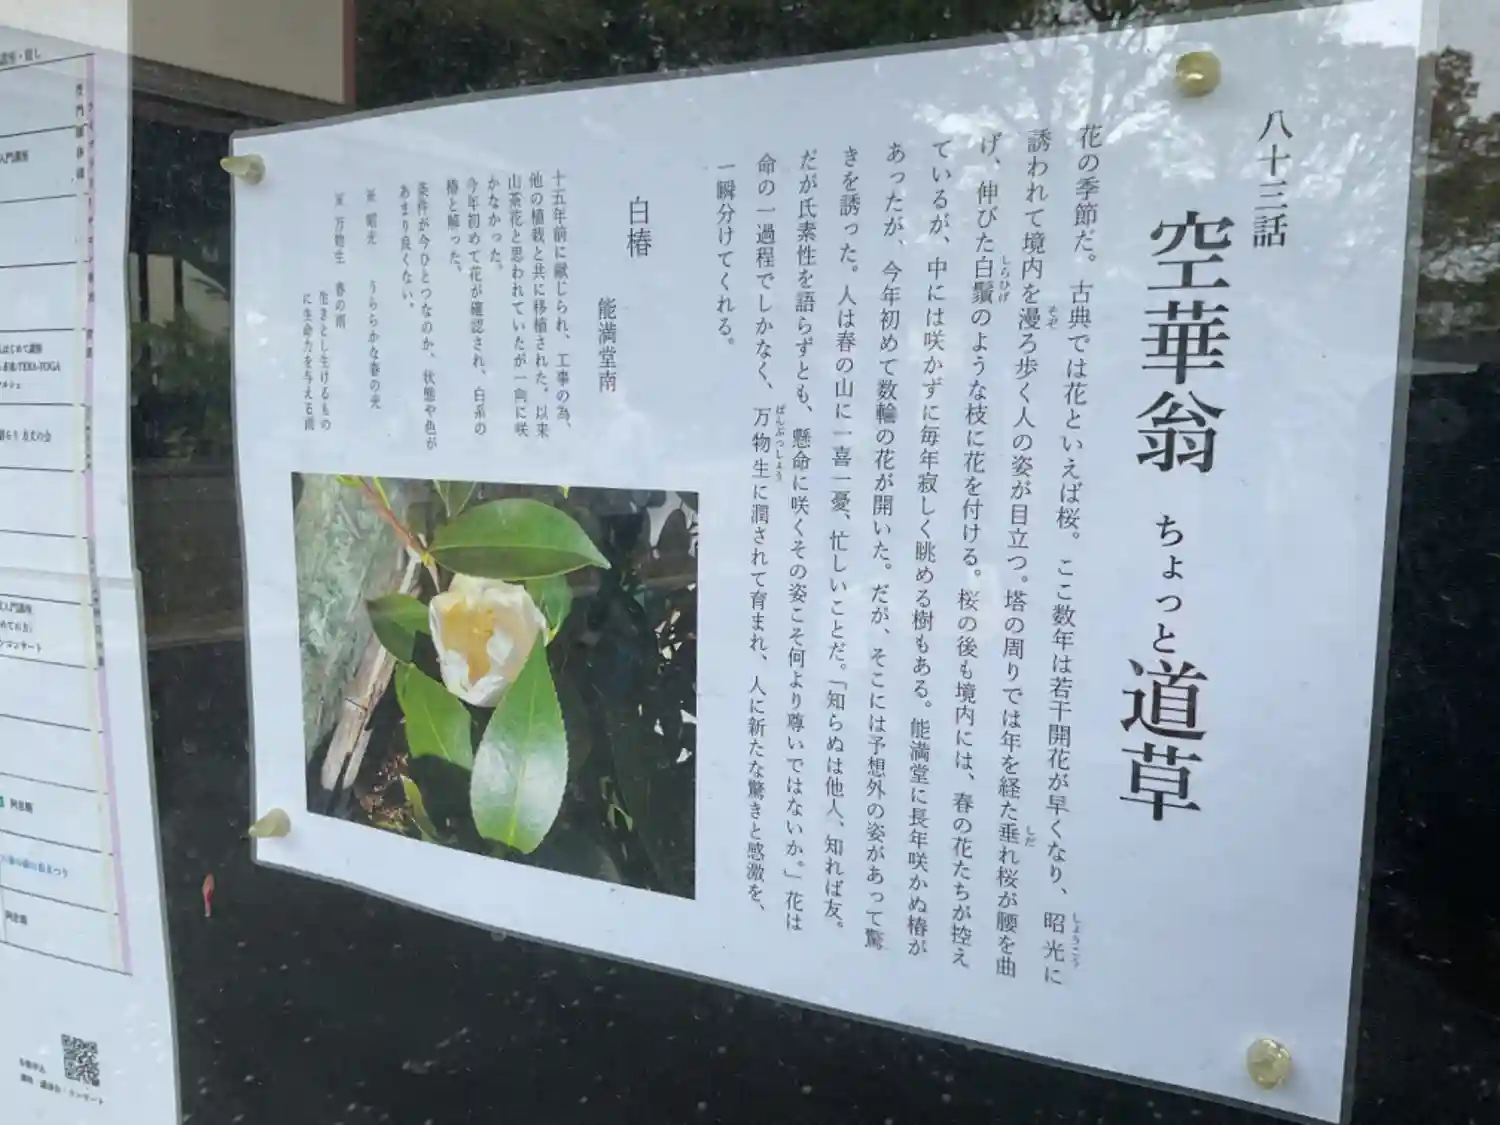 八十三話
空華翁 ちょっと道草
花の季節だ。古典では花といえば桜。ここ数年は若干開花が早くなり、昭光に
しょうこう
誘われて境内を漫ろ歩く人の姿が目立つ。塔の周りでは年を経た垂れ桜が腰を曲
そぞ
しだ
げ、伸びた白鬚のような枝に花を付ける。桜の後も境内には、春の花たちが控え
しらひげ
ているが、中には咲かずに毎年寂しく眺める樹もある。能満堂に長年咲かぬ椿が
あったが、今年初めて数輪の花が開いた。だが、そこには予想外の姿があって驚
きを誘った。人は春の山に一喜一憂、忙しいことだ。「知らぬは他人、知れば友。
だが氏素性を語らずとも、懸命に咲くその姿こそ何より尊いではないか。」花は
命の一過程でしかなく、万物生に潤されて育まれ、人に新たな驚きと感激を、
ばんぶつしょう
一瞬分けてくれる。
白椿
能満堂南
十五年前に献じられ、工事の為、
他の植栽と共に移植された。以来
山茶花と思われていたが一向に咲
かなかった。
今年初めて花が確認され、白系の
椿と解った。
条件が今ひとつなのか、状態や色が
あまり良くない。
※ 昭光 うららかな春の光
※ 万物生 春の雨
生きとし生けるもの
に生命力を与える雨
入門講座
阿息観
阿息観